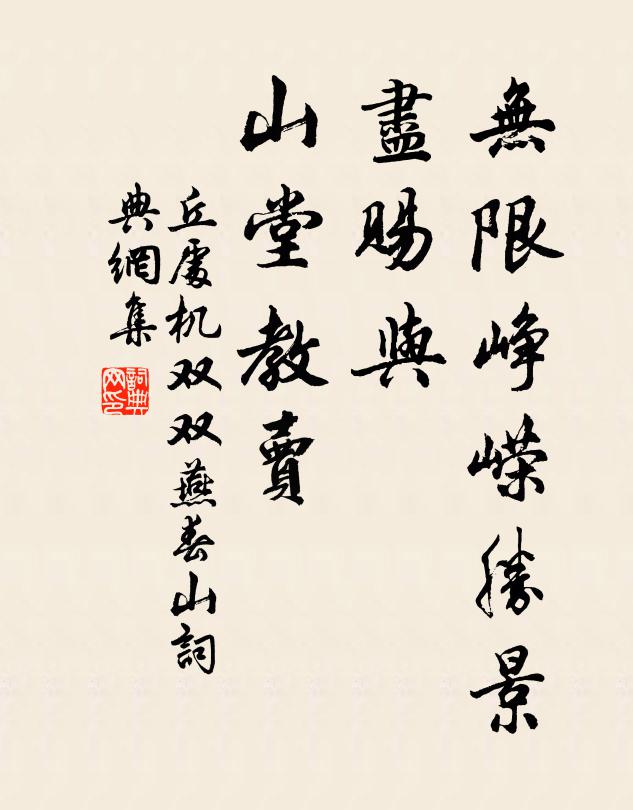 無限峥嶸勝景
盡賜與
山堂教賣
丘處机双双燕春山詞
典網集
詞典
网印